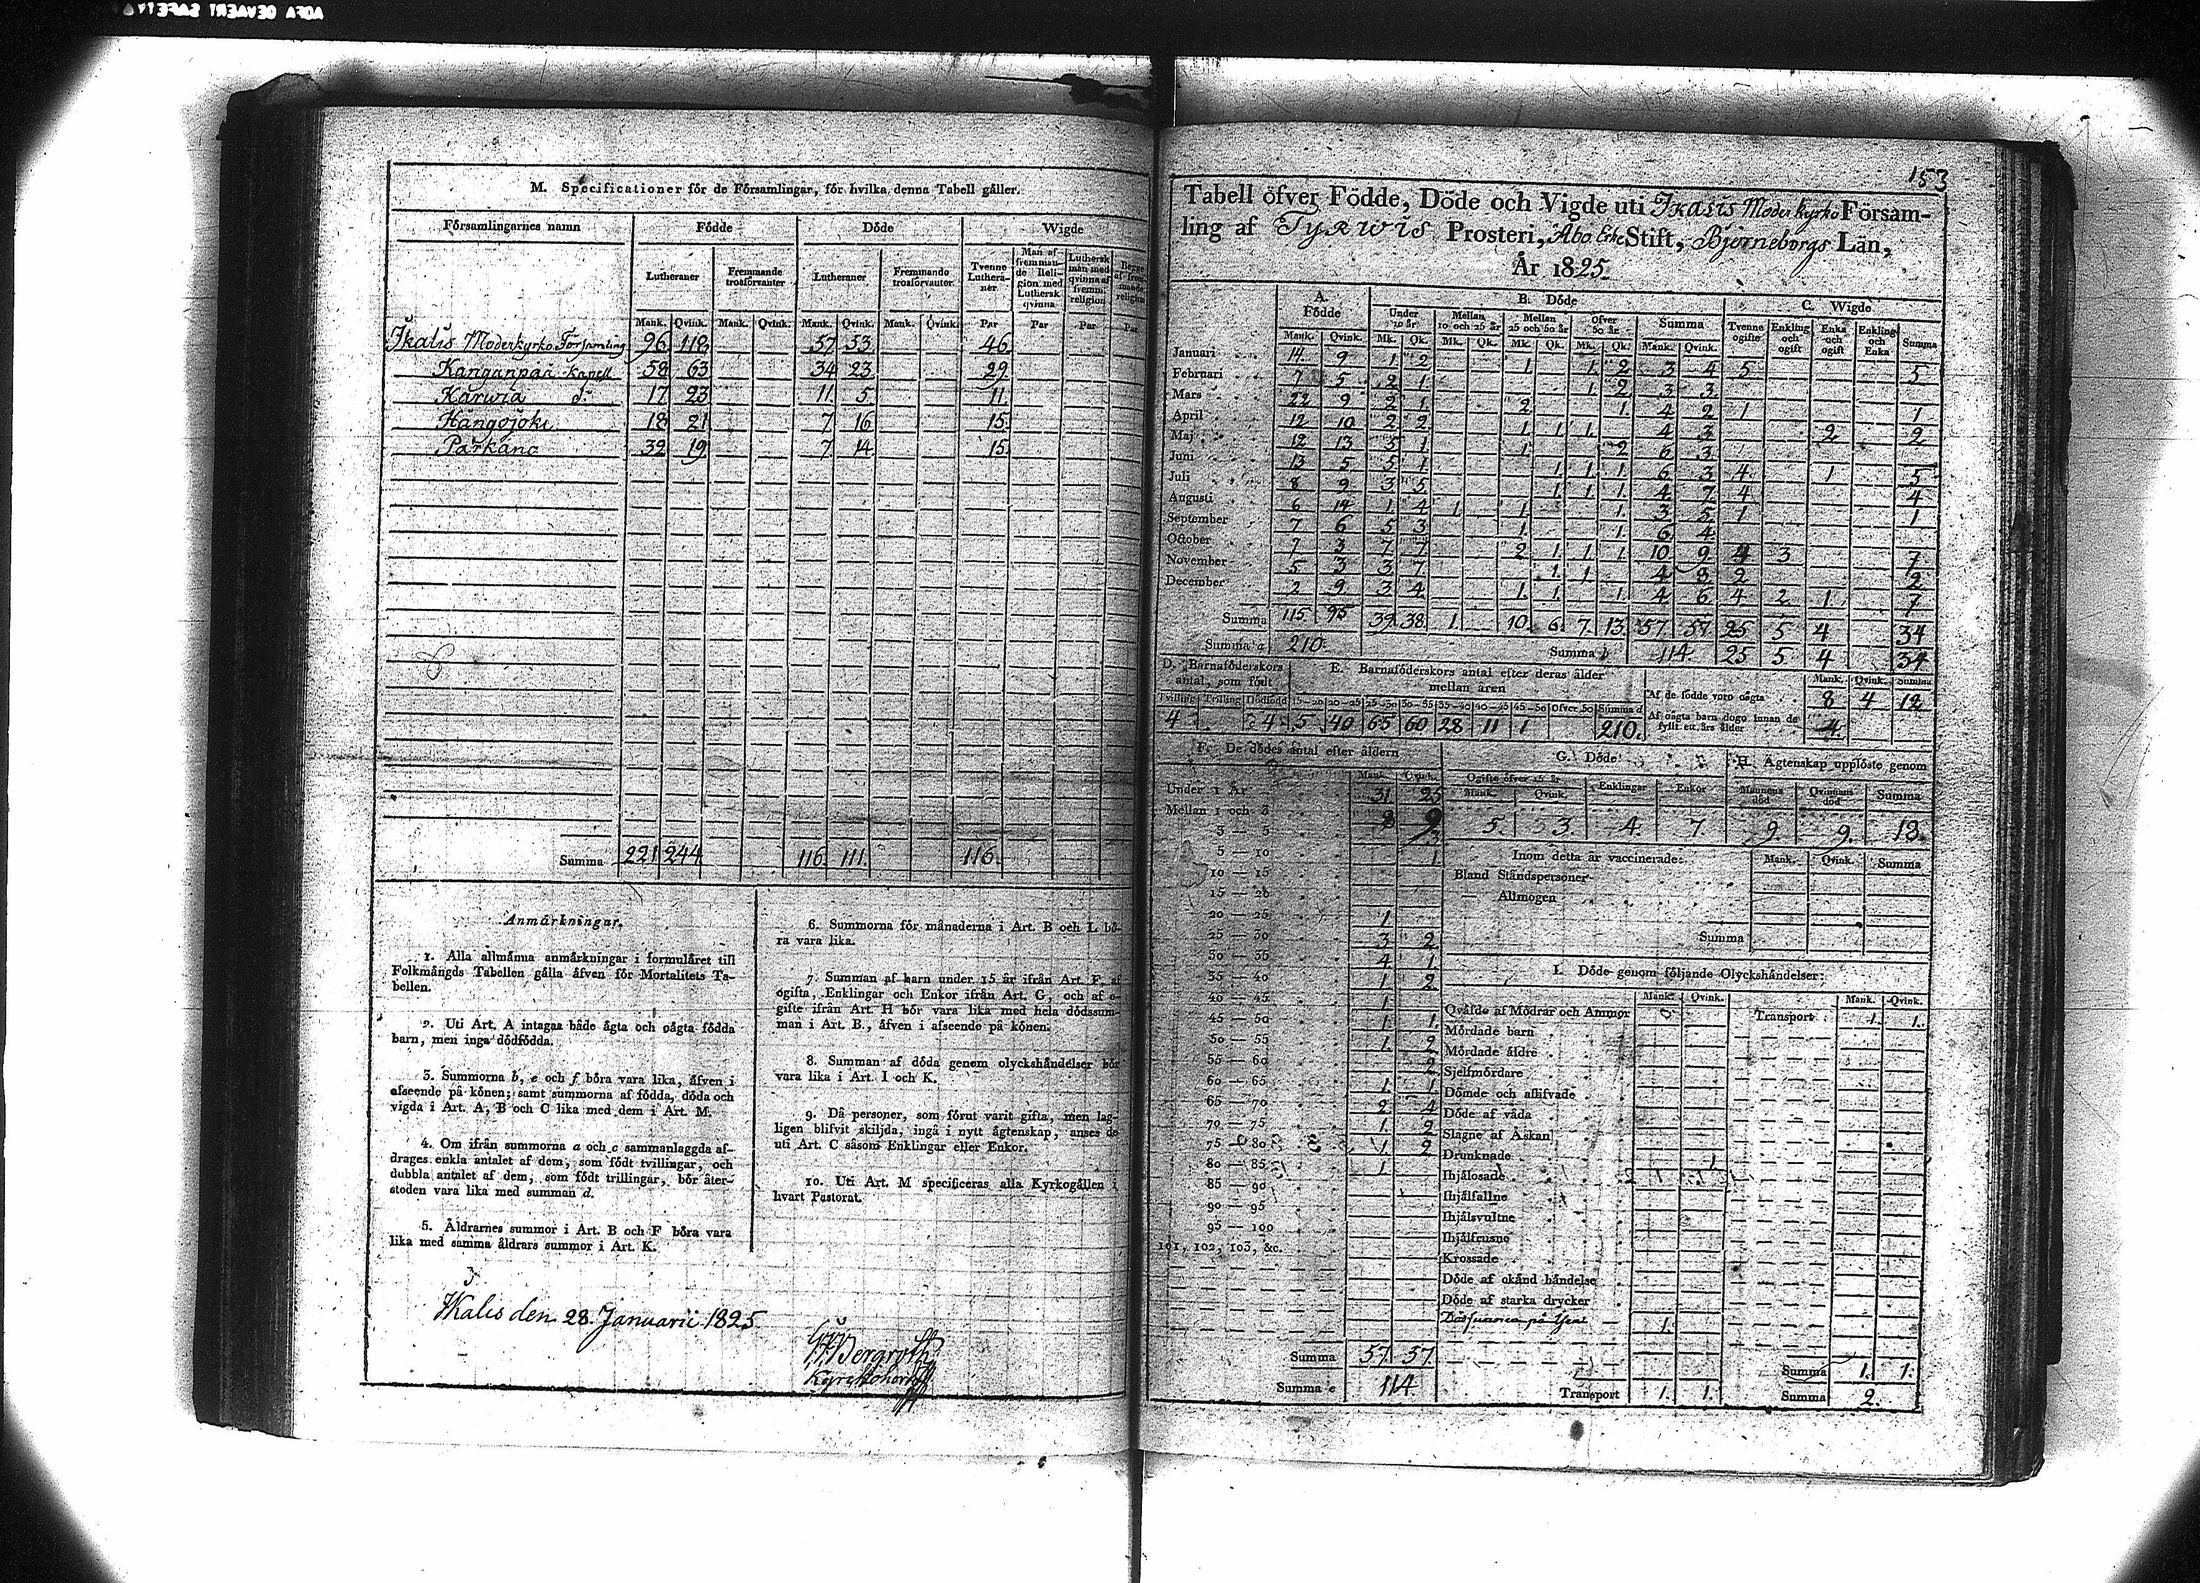 M. Specificationer för de Församlingar, för hvilka denna Tabell gäller.
Församlingarnes namn Födde Döde Wigde
Lutheraner Fremmande trosförvanter Lutheraner Fremmande trosförvanter Tvenne Lutheraner Man af fremmande Religion med Luthersk qvinna Luthersk man med qvinna af fremm: religion
Mank. Qvink. Mank. Qvink. Mank. Qvink. Mank. Qvink. Par Par Par Par
Ikalis Moderkyrko Församling 96 118 57 53 46
Kanganpää Kapell 58 63 34 23 29
Karwia d:o 17 23 11 5 11
Hängöjoki 18 21 7 16 15
Parkano 32 19 7 14 15
Summa 221 244 116 111 116
Anmärkningar.
1. Alla allmänna anmärkningar i formuläret till
Folkmängds Tabellen gälla äfven för Mortalitets Ta-
bellen.
2. Uti Art. A intagas både ägta och oägta födda
barn, men inga dödfödda.
3. Summorna b, e och f böra vara lika, äfven i
afseende på könen; samt summorna af födda, döda och
vigda i Art. A, B och C lika med dem i Art. M.
4. Om ifrån summorna a och c sammanlaggda af-
drages enkla antalet af dem, som födt tvillingar, och
dubbla antalet af dem, som födt trillingar, bör åter-
stoden vara lika med summan d.
5. Åldrarnes summor i Art. B och F böra vara
lika med samma åldrars summor i Art. K.
6. Summorna för månaderna i Art. B och L bö-
ra vara lika.
7. Summan af barn under 15 år ifrån Art. F, af
ogifta, Enklingar och Enkor ifrån Art. G, och af o-
gifte ifrån Art. H bör vara lika med hela dödssum-
man i Art. B, äfven i afseende på könen.
8. Summan af döda genom olyckshändelser bör
vara lika i Art. I och K.
9. Då personer, som förut varit gifta, men lag-
ligen blifvit skiljda, ingå i nytt ägtenskap, anses de
uti Art. C såsom Enklingar eller Enkor.
10. Uti Art. M specificeras alla Kyrkogällen i
hvart Pastorat.
Ikalis den 28 Januarii 1825
Bergroth
Kyrkoherde
153
Tabell öfver Födde, Döde och Vigde uti Ikalis Moderkyrko Försam-
ling af Tyrwis Prosteri, Åbo Erke Stift, Björneborgs Län,
År 1825.
A. Födde B. Döde C. Wigde
Under 10 år Mellan 10 och 25 år Mellan 25 och 50 år Öfver 50 år Summa Tvenne ogifte Enkling och ogift Enka och ogift Enkling och Enka Summa
Mank. Qvink. Mk. Qk. Mk. Qk. Mk. Qk. Mk. Qk. Mank. Qvink.
Januari 14 9 1 2 1 1 2 3 4 5 5
Februari 7 5 2 1 1 2 3 3
Mars 22 9 2 1 2 1 4 2 1 1
April 12 10 2 2 1 1 1 4 3 2 2
Maj 12 13 5 1 1 2 6 3
Juni 13 5 5 1 1 1 1 6 3 4 1 5
Juli 8 9 3 5 1 1 1 4 7 4 4
Augusti 6 14 1 4 1 1 1 3 5 1 1
September 7 6 5 3 1 1 6 4
October 7 3 7 7 2 1 1 1 10 9 4 3 7
November 5 3 3 7 1 1 4 8 2 2
December 2 9 3 4 1 1 1 4 6 4 2 1 7
Summa 115 95 39 38 1 10 6 7 13 57 57 25 5 4 34
Summa a 210 Summa b 114 25 5 4 34
D. Barnaföderskors antal, som födt
E. Barnaföderskors antal efter deras ålder mellan åren
Tvilling Trilling Dödfödd 15—20 20—25 25—30 30—35 35—40 40—45 45—50 Öfver 50 Summa d
4 4 5 40 65 60 28 11 1 210
Mank. Qvink. Summa
Af de födde voro oägta 8 4 12
Af oägta barn dogo innan de fyllt ett års ålder 4
F. De dödes antal efter åldern
Mank. Qvink.
Under 1 År 31 25
Mellan 1 och 3 8 9
3 — 5 3
5 — 10 1
10 — 15
15 — 20
20 — 25 1
25 — 30 3 2
30 — 35 4 1
35 — 40 1 2
40 — 45 1
45 — 50 1 1
50 — 55 1 2
55 — 60 2
60 — 65 1 1
65 — 70 2 4
70 — 75 1 2
75 — 80 1 2
80 — 85 1
85 — 90
90 — 95
95 — 100
101, 102, 103, &c.
Summa 57 57
Summa e 114
G. Döde H. Ägtenskap upplöste genom
Ogifte öfver 15 år Enklingar Enkor Mannens död Qvinnans död Summa
Mank. Qvink.
5 3 4 7 9 9 18
Inom detta år vaccinerade: Mank. Qvink. Summa
Bland Ståndspersoner
— Allmogen
Summa
I. Döde genom följande Olyckshändelser:
Mank. Qvink. Mank. Qvink.
Qväfde af Mödrar och Ammor Transport 1 1
Mördade barn
Mördade äldre
Sjelfmördare
Dömde och aflifvade
Döde af våda
Slagne af Åskan
Drunknade 1
Ihjälosade
Ihjälfallne
Ihjälsvultne
Ihjälfrusne
Krossade
Döde af okänd händelse
Döde af starka drycker
1
Summa 1 1
Transport 1 1 Summa 2